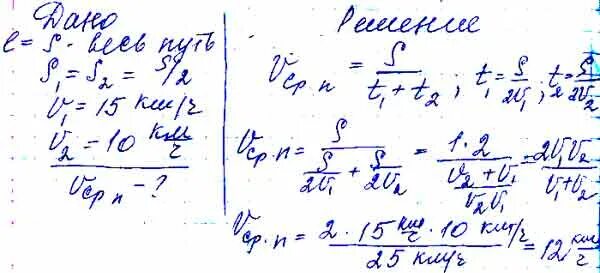 Дано
l = S - весь путь
S₁ = S₂ = S/2
V₁ = 15 км/ч
V₂ = 10 км/ч
Vср п - ?
Решение
Vср п = S / (t₁ + t₂) ; t₁ = S/2V₁ ; t₂ = S/2V₂
Vср.п = S / (S/2V₁ + S/2V₂) = 1·2 / ((V₂ + V₁)/V₂V₁) = 2V₁V₂ / (V₁+V₂)
Vср.п = 2 · 15 км/ч · 10 км/ч / 25 км/ч = 12 км/ч